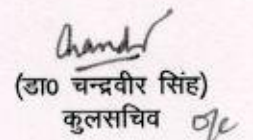 Chandr
(डा० चन्द्रवीर सिंह)
कुलसचिव o/c